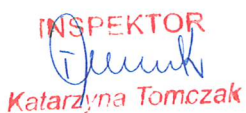 INSPEKTOR
Katarzyna Tomczak